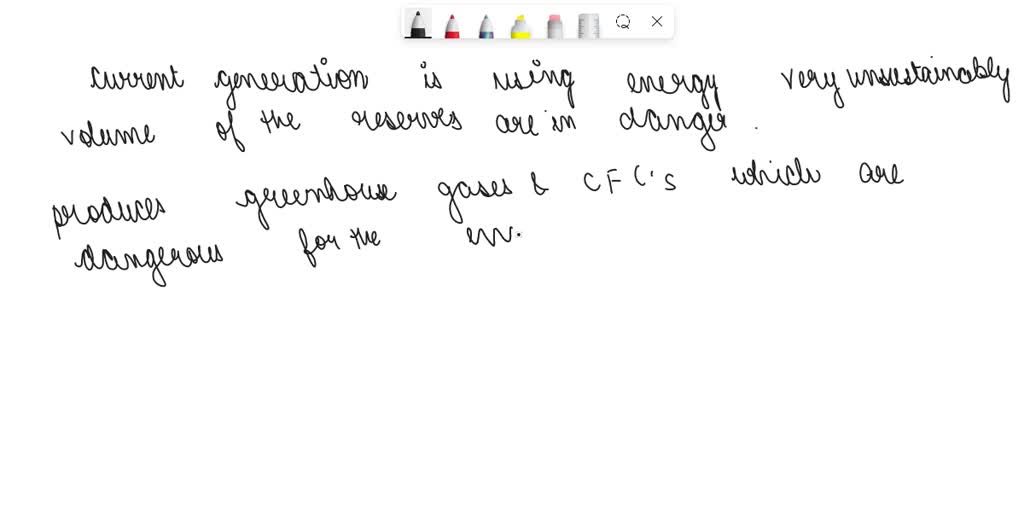 current generation is using energy very unsustainably
volume of the reserves are in danger.
produces greenhouse gases & CFC's which are
dangerous for the env.